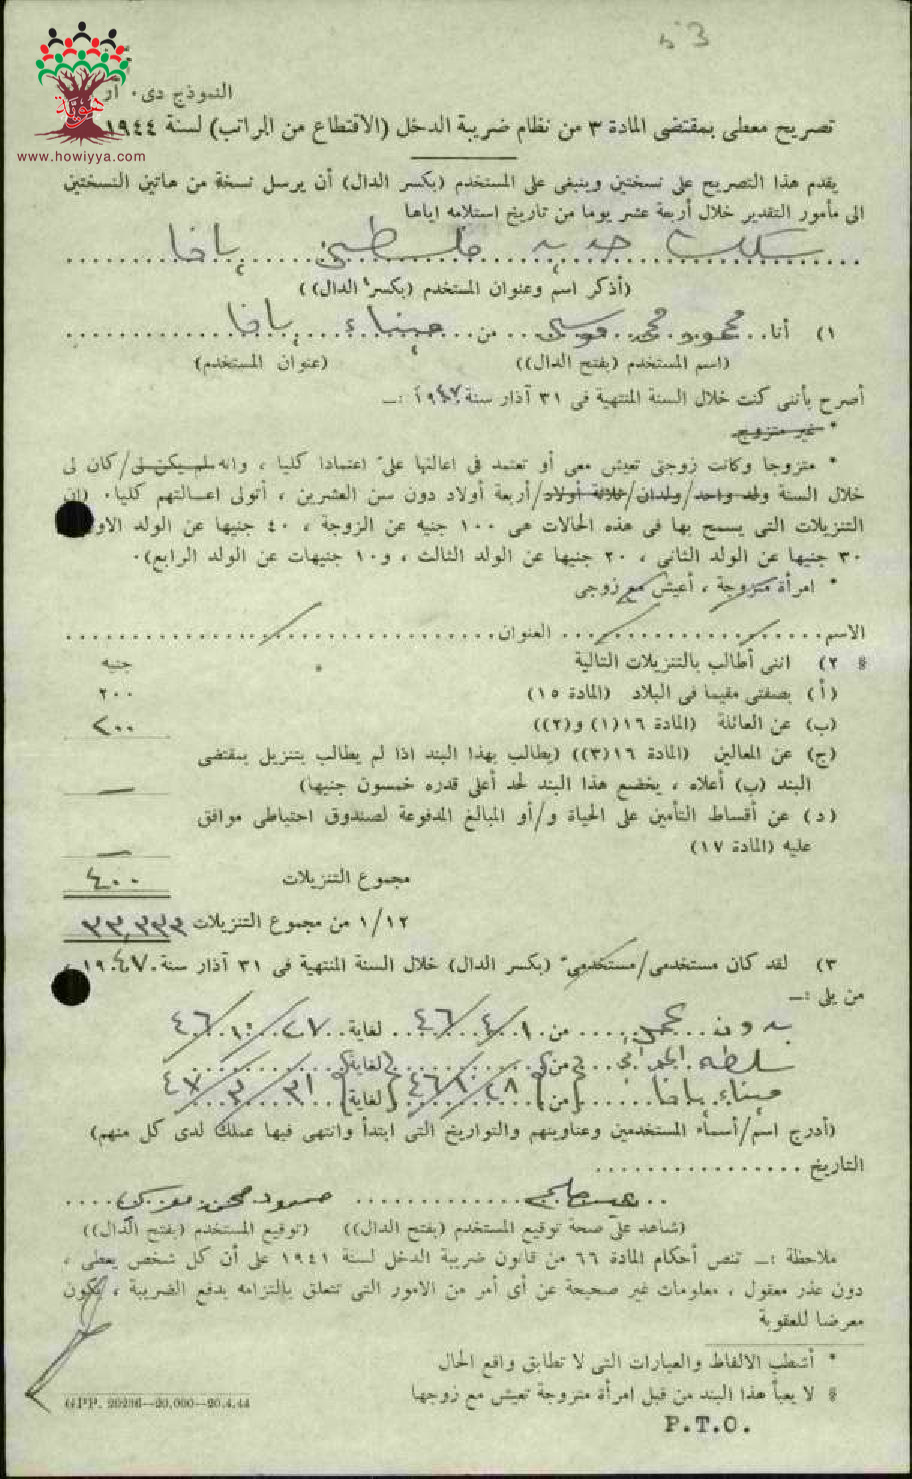 53
هويّة
www.howiyya.com
النموذج دى٠ آر
تصريح معطى بمقتضى المادة ٣ من نظام ضريبة الدخل (الاقتطاع من الراتب) لسنة ١٩٤٤
يقدم هذا التصريح على نسختين وينبغى على المستخدم (بكسر الدال) أن يرسل نسخة من هاتين النسختين
الى مأمور التقدير خلال أربعة عشر يوما من تاريخ استلامه اياها
سكك حديد فلسطين يافا
(أذكر اسم وعنوان المستخدم (بكسر الدال))
١) أنا محمود محمد موسى من ميناء يافا
(اسم المستخدم (بفتح الدال)) (عنوان المستخدم)
أصرح بأننى كنت خلال السنة المنتهية فى ٣١ آذار سنة ١٩٤٧ :ـ
* غير متزوج
* متزوجا وكانت زوجتى تعيش معى أو تعتمد فى اعالتها علىّ اعتمادا كليا ، وانه لم يكن لى/كان لى
خلال السنة ولد واحد/ولدان/ثلاثة أولاد/أربعة أولاد دون سن العشرين ، أتولى اعالتهم كليا٠ (ان
التنزيلات التى يسمح بها فى هذه الحالات هى ١٠٠ جنيه عن الزوجة ، ٤٠ جنيها عن الولد الاول
٣٠ جنيها عن الولد الثانى ، ٢٠ جنيها عن الولد الثالث ، و١٠ جنيهات عن الولد الرابع)٠
* امرأة متزوجة ، أعيش مع زوجى
الاسم العنوان
§ ٢) اننى أطالب بالتنزيلات التالية جنيه
(أ) بصفتى مقيما فى البلاد (المادة ١٥) ٢٠٠
(ب) عن العائلة (المادة ١٦(١) و(٢)) ٢٠٠
(ج) عن المعالين (المادة ١٦(٣)) (يطالب بهذا البند اذا لم يطالب بتنزيل بمقتضى
البند (ب) أعلاه ، يخضع هذا البند لحد أعلى قدره خمسون جنيها) —
(د) عن أقساط التأمين على الحياة و/أو المبالغ المدفوعة لصندوق احتياطى موافق
عليه (المادة ١٧) —
مجموع التنزيلات ٤٠٠
١/١٢ من مجموع التنزيلات ٣٣,٣٣٣
٣) لقد كان مستخدمى/مستخدمىّ (بكسر الدال) خلال السنة المنتهية فى ٣١ آذار سنة ١٩٤٧ ،
من يلى :ـ
بدون عمل من ١/٤/٤٦ لغاية ٢٧/١٠/٤٦
سلطة من لغاية
ميناء يافا من ٢٨/١٠/٤٦ لغاية ٣١/٣/٤٧
(أدرج اسم/أسماء المستخدمين وعناوينهم والتواريخ التى ابتدأ وانتهى فيها عملك لدى كل منهم)
التاريخ
محمود محمد موسى
(شاهد على صحة توقيع المستخدم (بفتح الدال)) (توقيع المستخدم (بفتح الدال))
ملاحظة :ـ تنص أحكام المادة ٦٦ من قانون ضريبة الدخل لسنة ١٩٤١ على أن كل شخص يعطى ،
دون عذر معقول ، معلومات غير صحيحة عن أى أمر من الامور التى تتعلق بالتزامه بدفع الضريبة ، يكون
معرضا للعقوبة
* أشطب الالفاظ والعبارات التى لا تطابق واقع الحال
§ لا يعبأ هذا البند من قبل امرأة متزوجة تعيش مع زوجها
GPP. 20236—20,000—20.4.44
P.T.O.